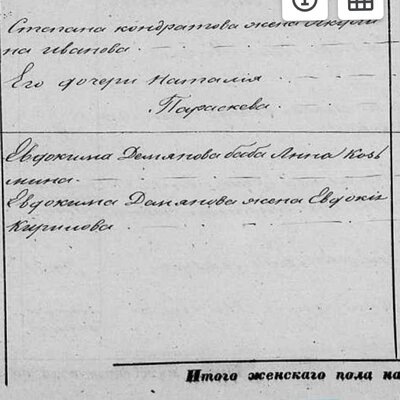 Степана кондратова жена Акули
на иванова.
Его дочери Наталія
Параскева.
Евдокима Демянова баба Анна Козь
мина.
Евдокима Данянова жена Евдокія
Кирилова
Итого женскаго пола на